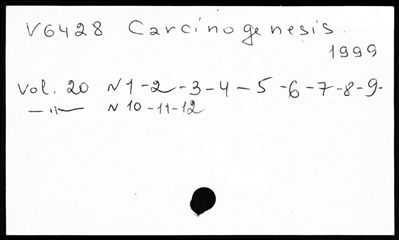 V6428 Carcinogenesis.
1999
Vol. 20 N1-2-3-4-5-6-7-8-9-
—〃— N10-11-12